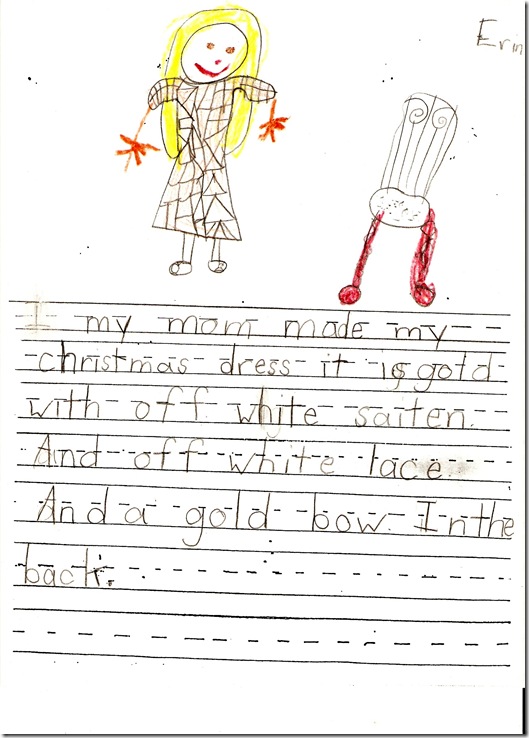 Erin
I my mom made my
christmas dress it is gold
with off white saiten.
And off white lace.
And a gold bow. In the
back.